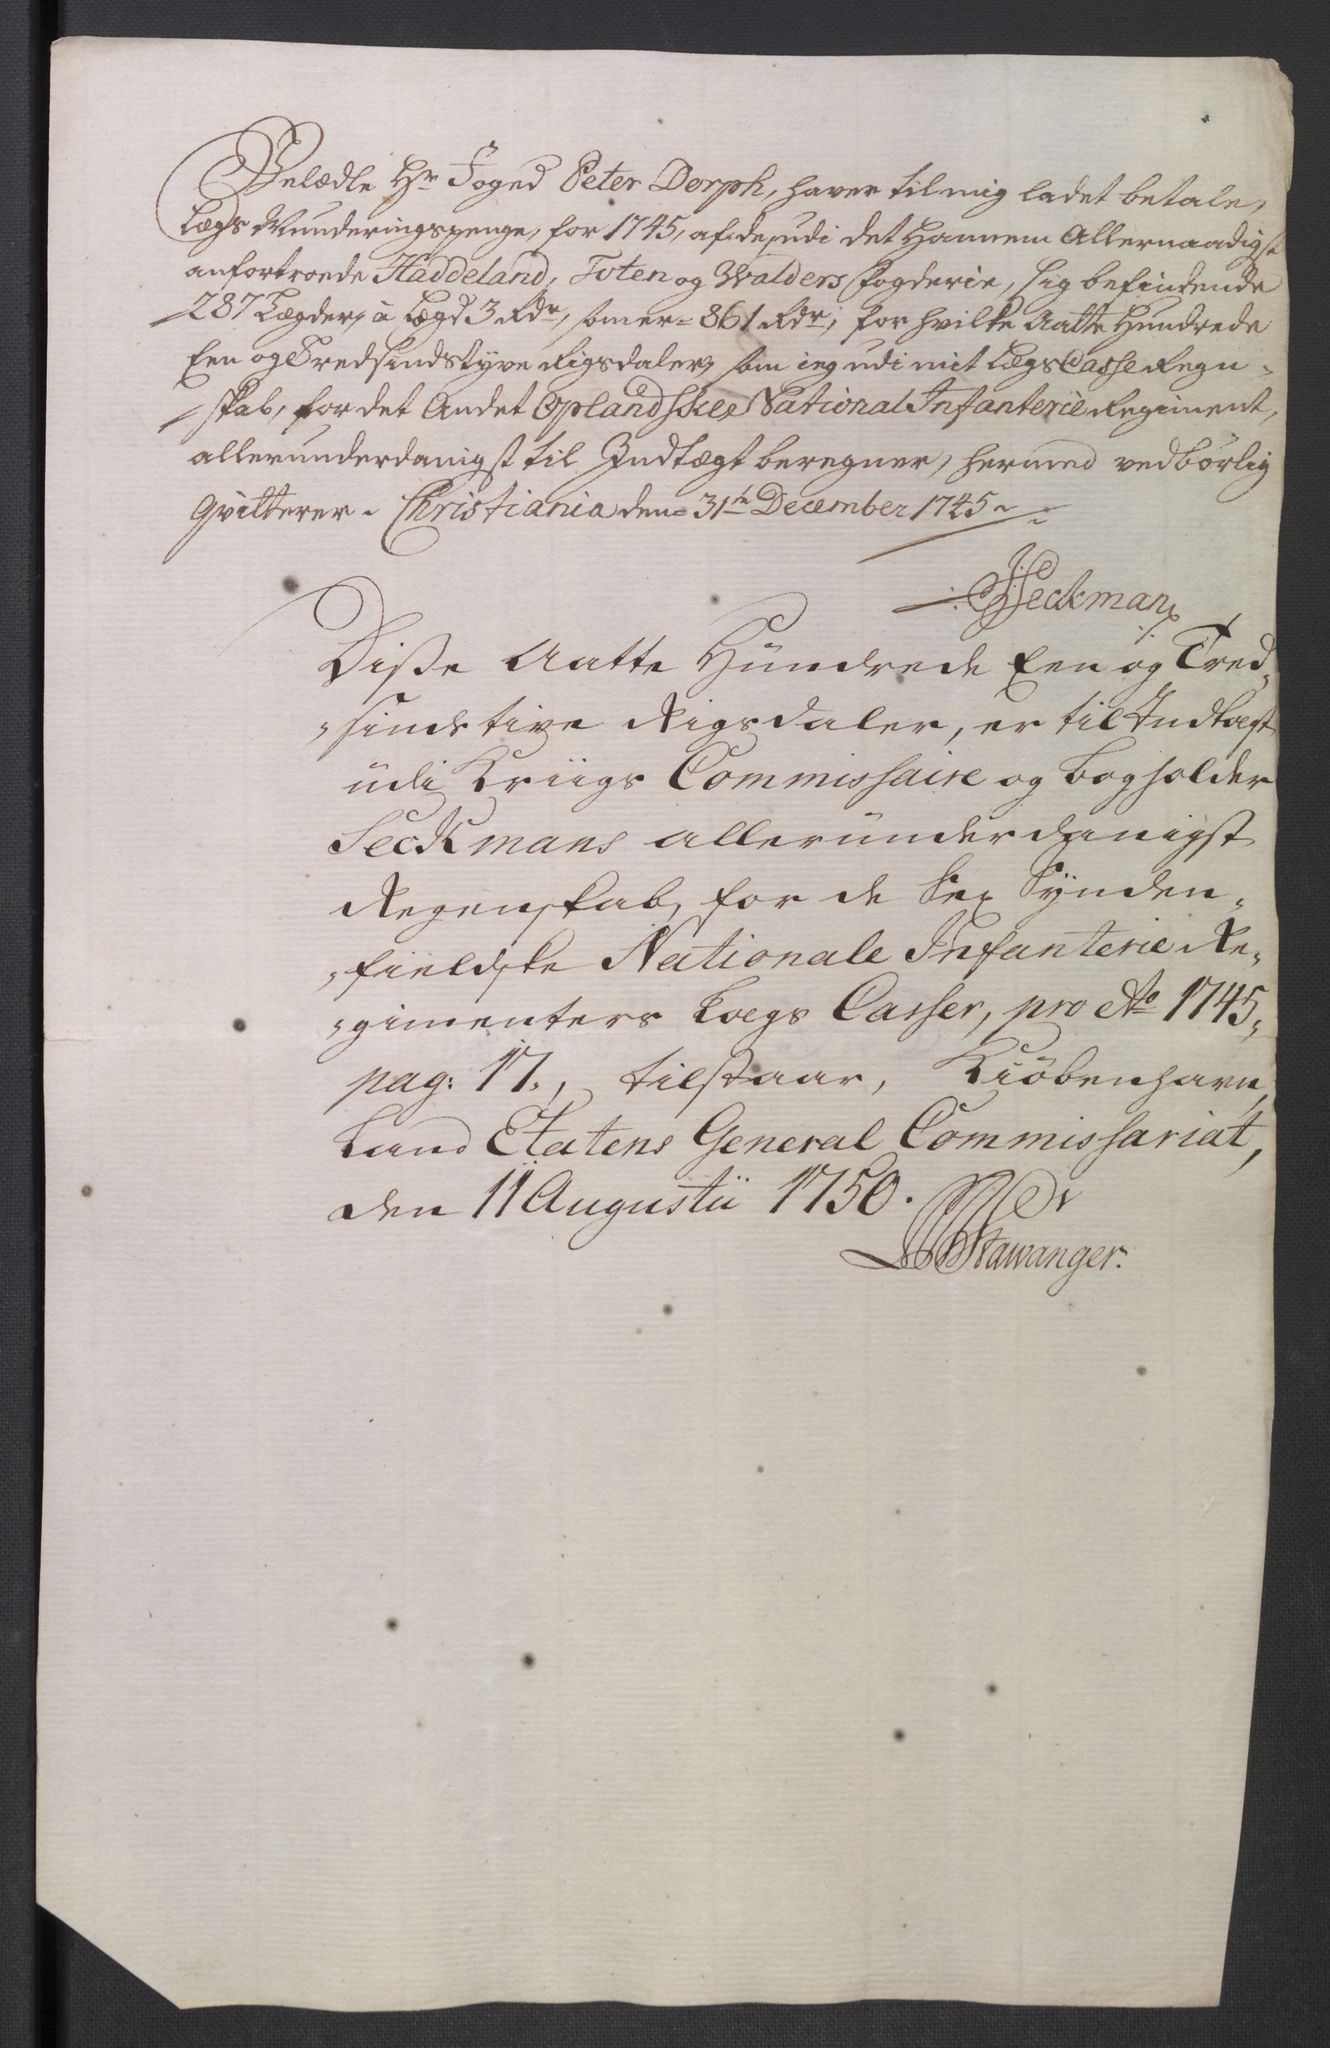 Velædle Hr Foged Peter Dorph, haver til mig ladet betale,
Lægs Munderingspenge, for 1745, af de, udi det Hannem Allernaadigst
anfortroede Haddeland, Toten og Walders Fogderie, sig befindende
287 Lægder, à Lægd 3 Rdr, som er = 861 Rdr, for hvilke Aatte Hundrede
Een og Tredsindstyve Rigsdaler, som ieg udi mit Lægs Casse Regn-
-skab, for det Andet Oplandske National Infanterie Regiment,
allerunderdanigst til Indtægt beregner, hermed vedbörlig
Qvitterer. Christiania den = 31te December 1745.
Seckman
Diße Aatte Hundrede Een og Tred-
-sindstive Rigsdaler, er til Indtægt
udi Kriigs Commissaire og bogholder
Seckmans allerunderdanigst
Regenskab, for de Sex Synden-
-fieldske Nationale Infanterie Re-
-gimenters Lægs Casser, pro Ao 1745,
pag: 17., tilstaar, Kiöbenhavn,
Land Etatens General Commissariat,
den 11 Augustii 1750.
Stawanger.